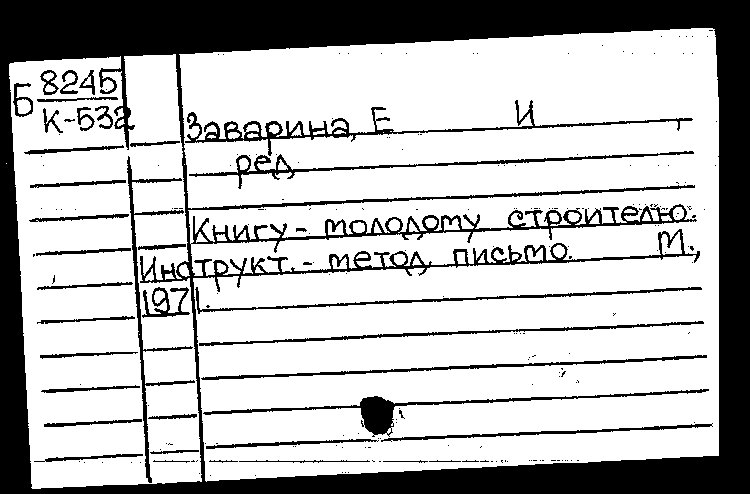 Б 8245
К-532
Заварина, Е И ,
ред
Книгу - молодому строителю.
Инструкт. - метод. письмо. М.,
1971.